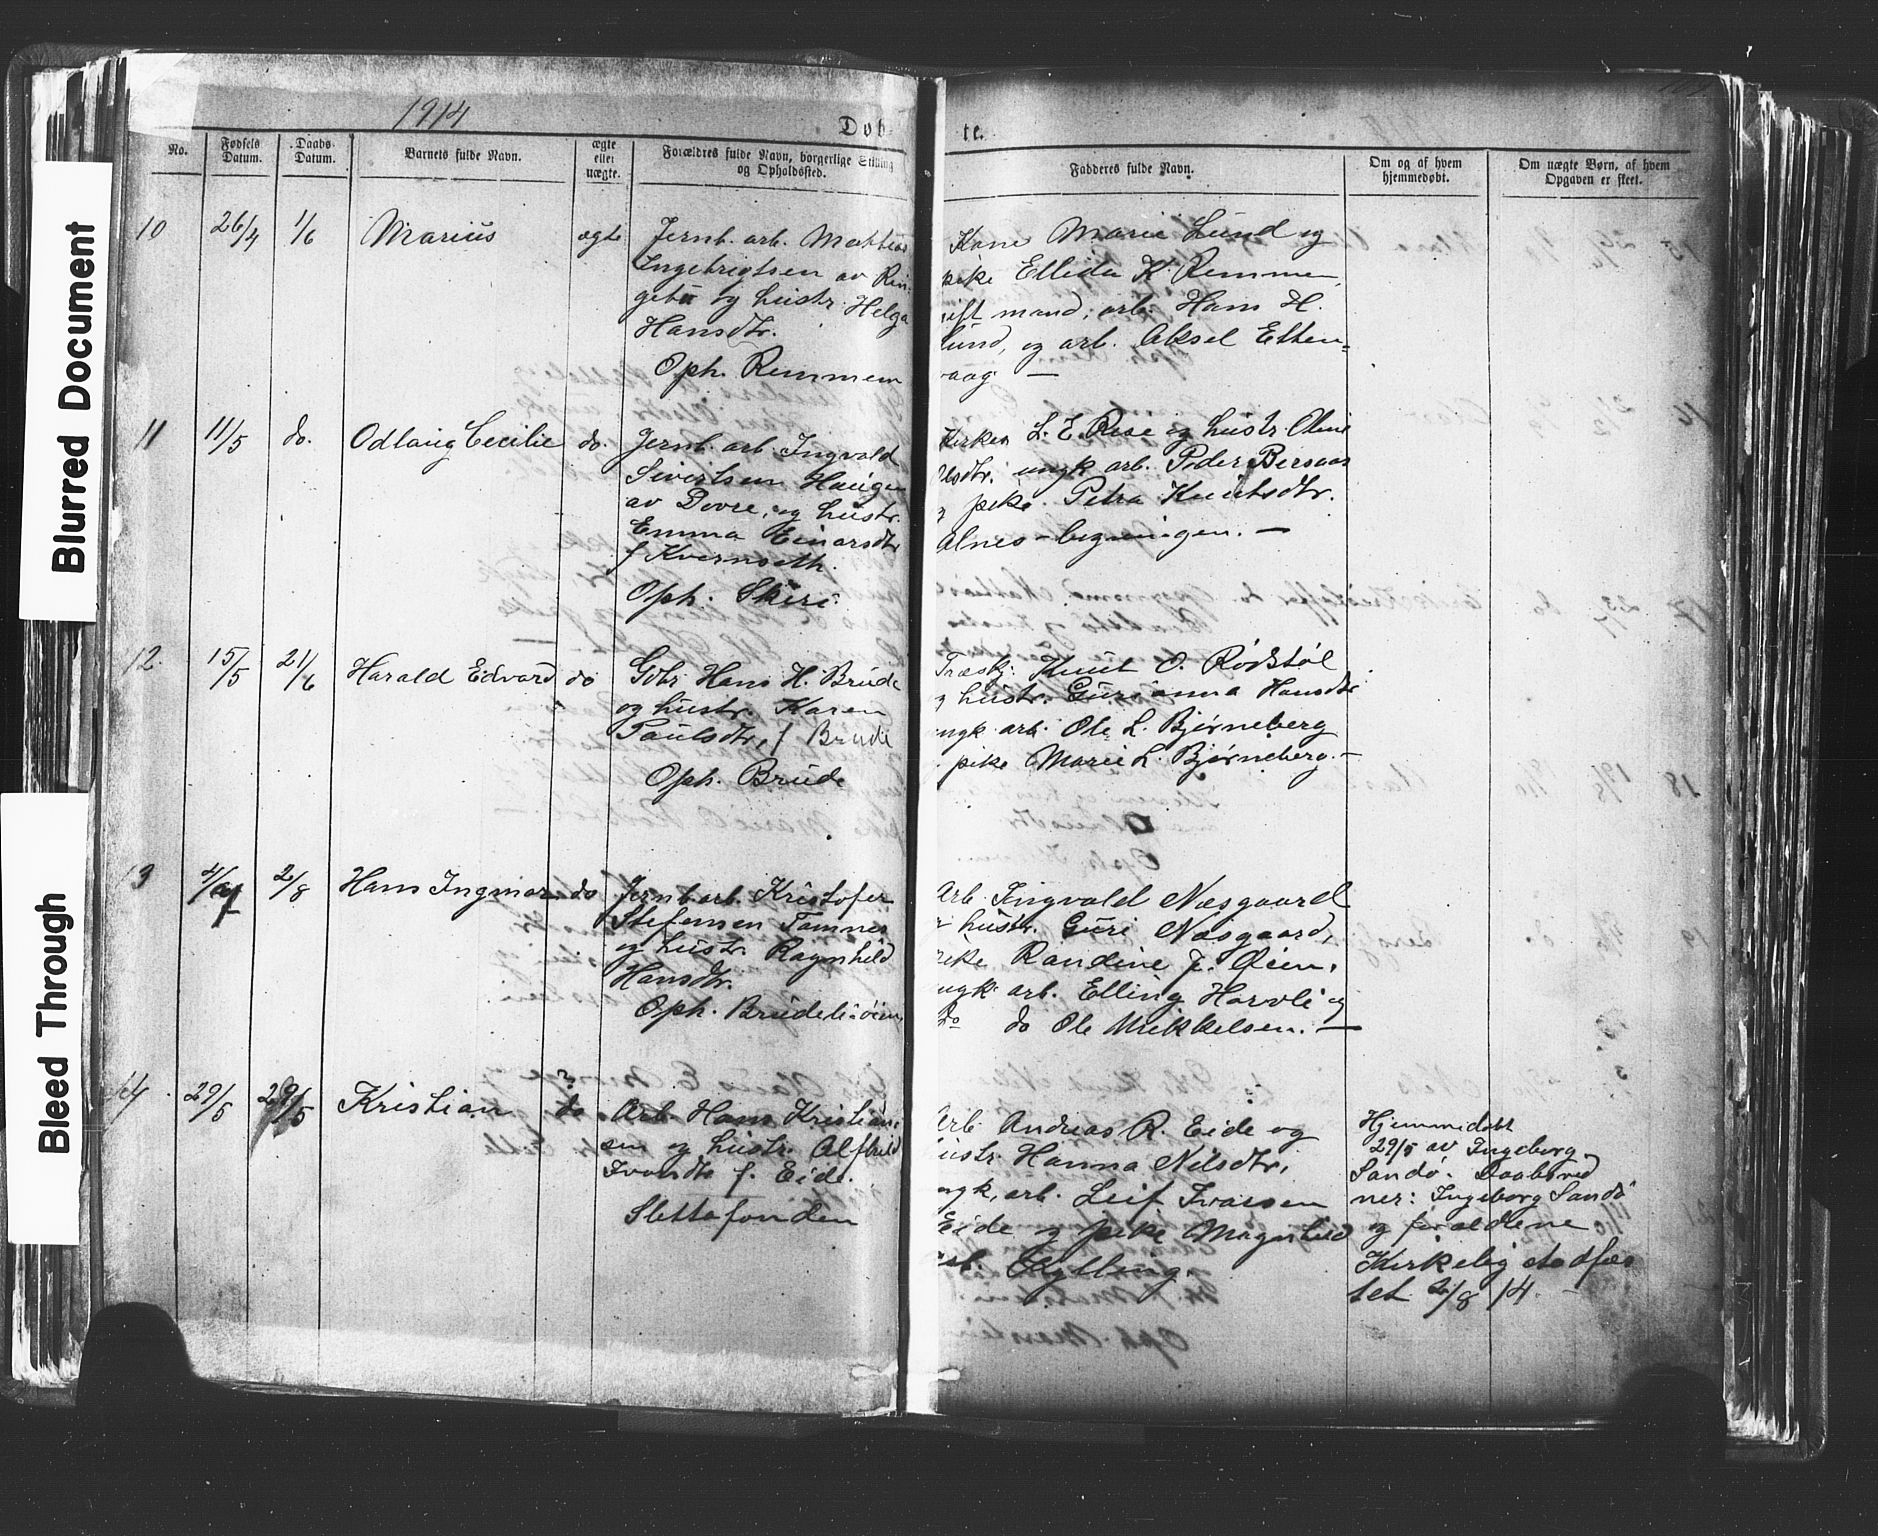 Blurred Document
Bleed Through
1914
Døb
te.
No.
Fødsels Datum.
Daabs Datum.
Barnets fulde Navn.
ægte eller uægte.
Forældres fulde Navn, borgerlige Stilling og Opholdssted.
Fadderes fulde Navn.
Om og af hvem hjemmedøbt.
Om uægte Børn, af hvem Opgaven er skeet.
10 26/4 1/6 Marius ægte
Jernb. arb. Mattias
Ingebrigtsen av Rin-
gebu og hustr. Helga
Hansdtr.
Oph. Remmem
Kone Marie Lund og
pike Ellida K. Remmem
gift mand, arb. Hans H.
Lund, og arb. Aksel Elten=
vaag —
11 11/5 do. Odlaug Cecilie do.
Jernb. arb. Ingvald
Sivertsen Haugen
av Dovre, og hustr.
Emma Einarsdtr
f Kvernseth.
Oph. Skiri
L. E. Rise og hustr. Oline
Olsdtr. ungk arb. Peder Bersaas
pike Petra Knutsdtr.
Alnes-bygningen. —
12. 15/5 21/6 Harald Edvard do
Gbr. Hans H. Brude
og hustr. Karen
Paulsdtr, f Brude
Oph. Brude
Træskj. Knut O. Rødstøl
og hustr. Gurianna Hansdtr
ungk arb. Ole L. Bjørneberg
pike Marie L. Bjørneberg. —
13 2/8 Hans Ingmar do
Jernb. arb. Kristofer
Stefensen Tomnes
og hustr. Ragnhild
Hansdtr.
Oph. Brudeliøien
Arb. Ingvald Næsgaard
hustr. Guri Næsgaard,
pike Randine J. Øien,
ungk arb. Elling Horvli og
do do Ole Mikkelsen. —
14 29/5 29/5 Kristian do
Arb. Hans Kristian-
sen og hustr. Alfhild
Ivarsdtr f. Eide.
Slettafonden
Arb. Andreas R. Eide og
hustr. Hanna Nilsdtr,
ungk, arb. Leif Ivarsen
Eide og pike Magnhild
Kylling.
Hjemmedøbt
29/5 av Ingeborg
Sandø. Daabsvid
ner: Ingeborg Sandø
og forældrene
Kirkelig stadfæs
tet 2/8 14. —